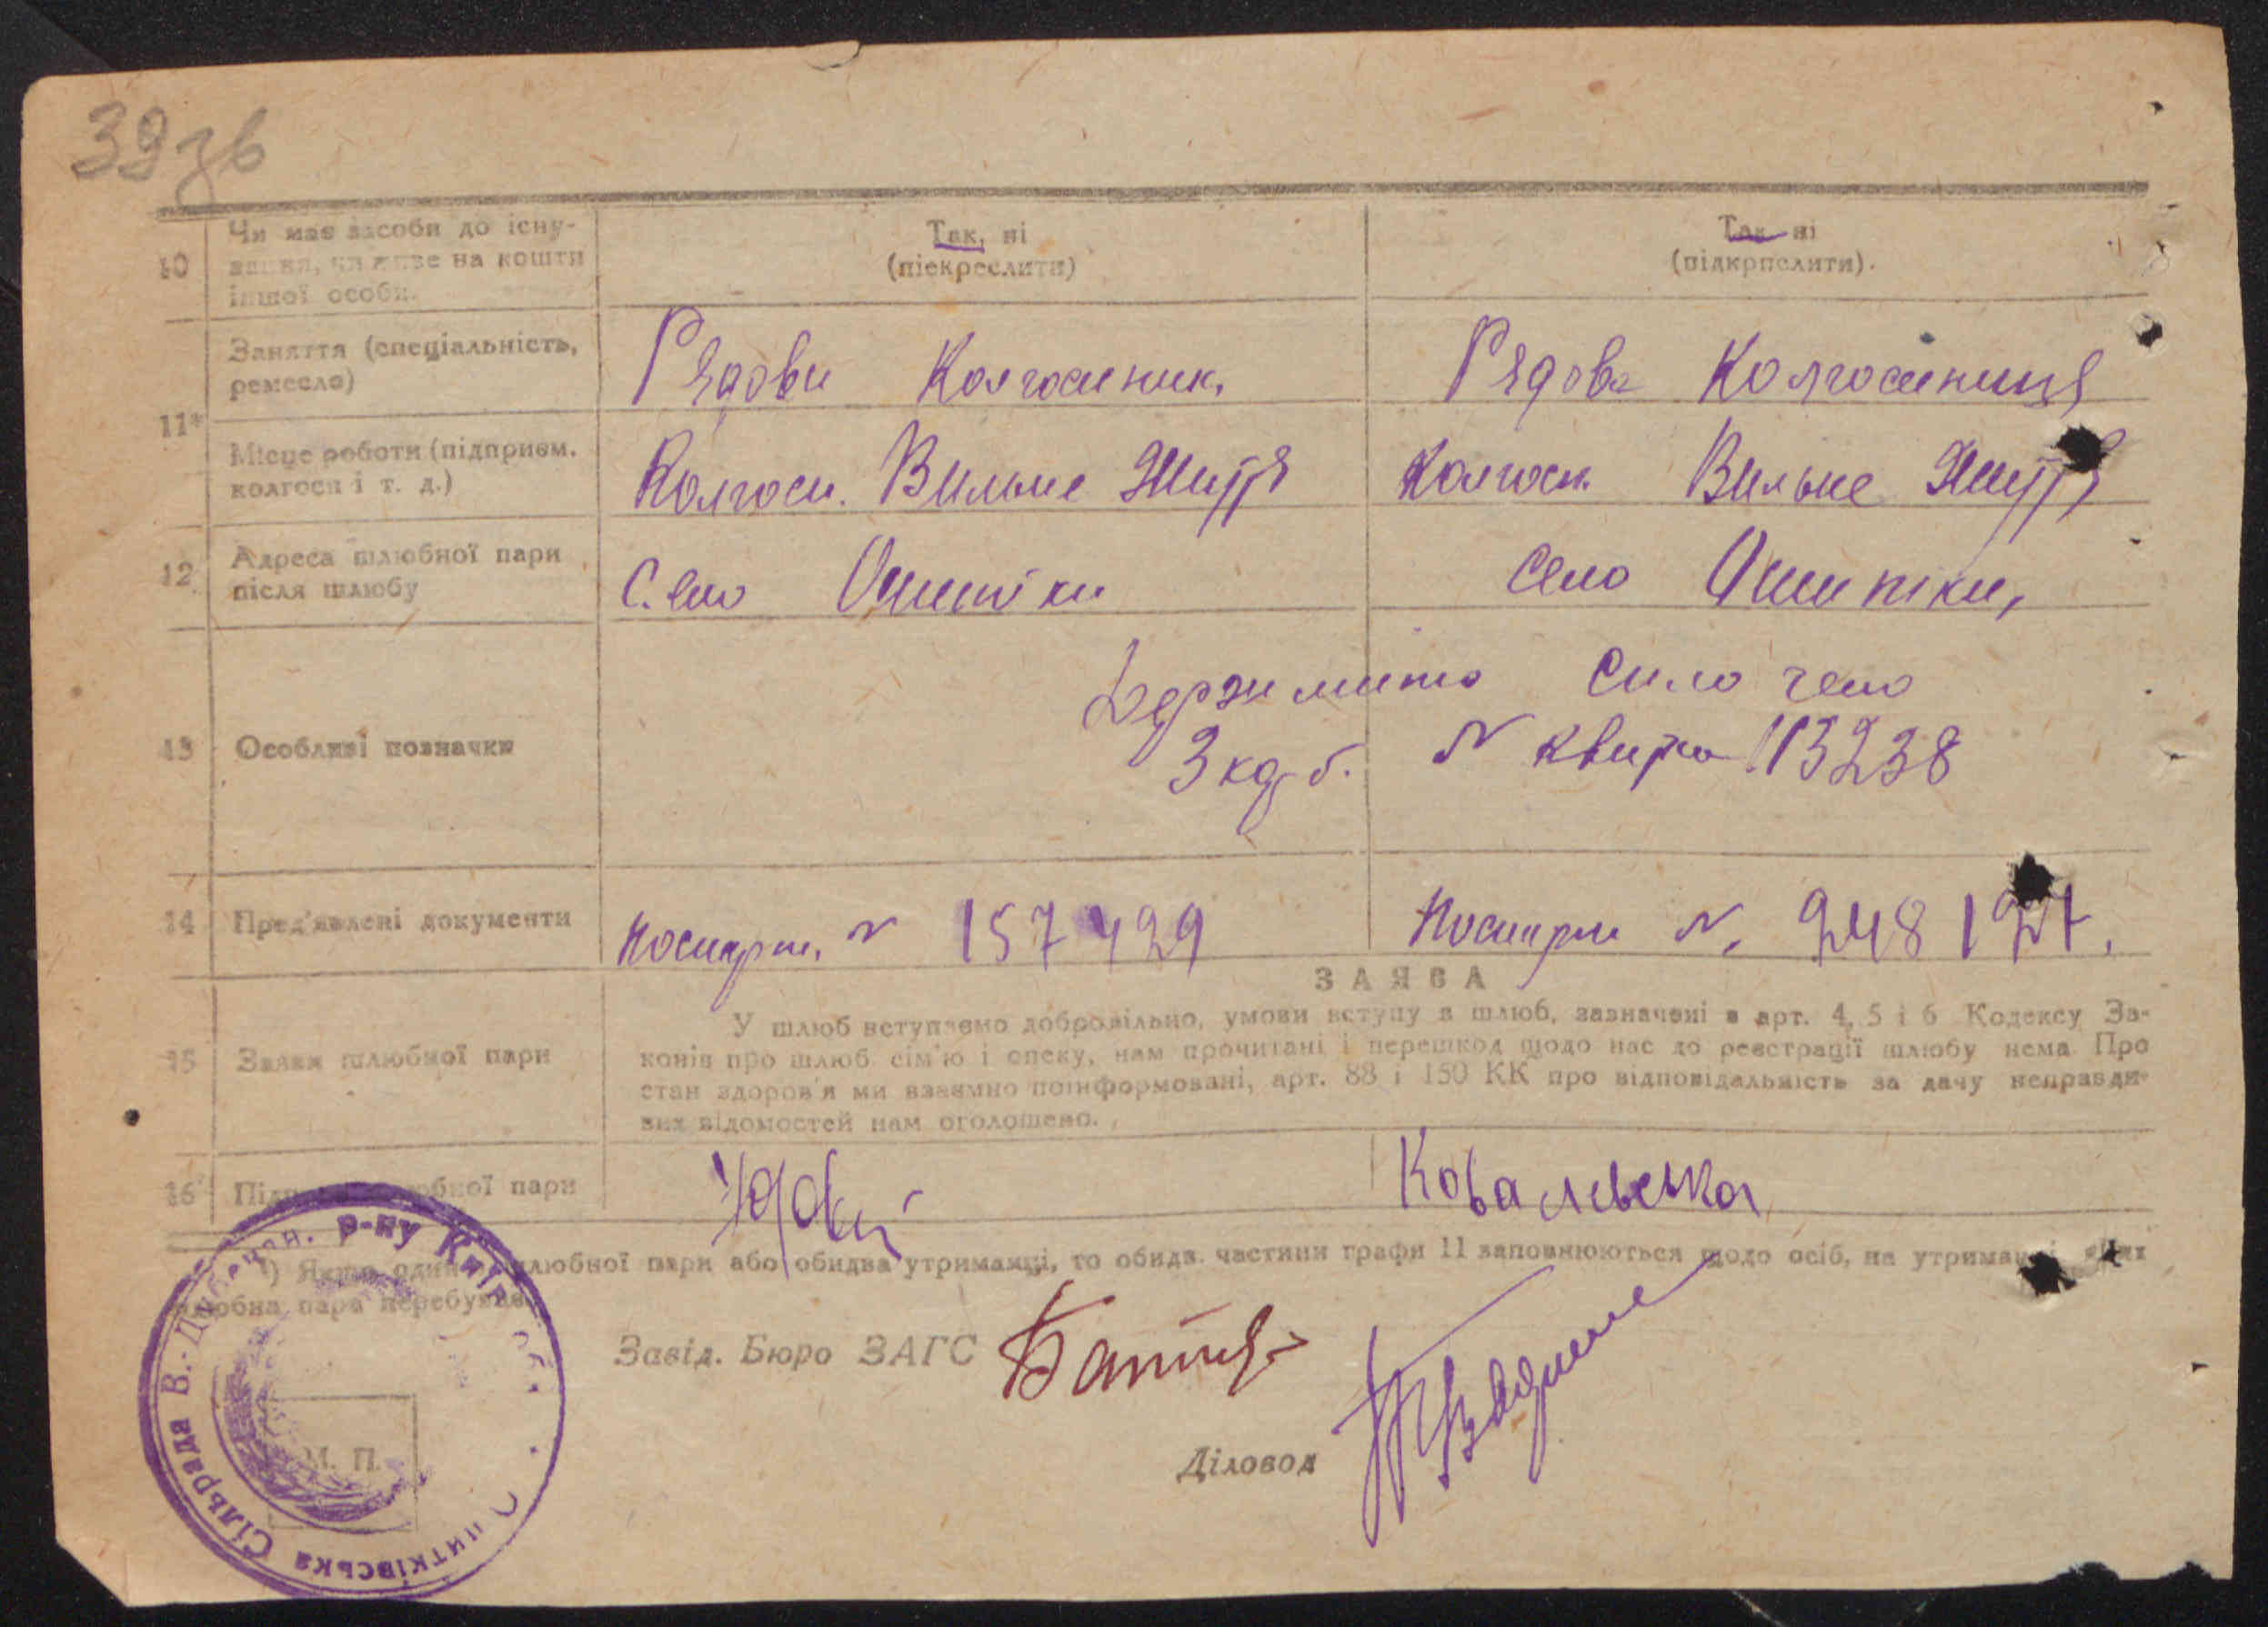 39 зв
10
Чи має засоби до існу-
вання, чи живе на кошти
іншої особи.
Так, ні
(піекреслити)
Так ні
(підкрпслити).
11*
Заняття (спеціальність,
ремесло)
Рядови Колгоспник.
Рядова Колгоспниця
Місце роботи (підприєм.
колгосп і т. д.)
Колгосп. Вильне Життя
Колгосп. Вильне Життя
12
Адреса шлюбної пари
після шлюбу
Село Ошитки
Село Ошитки,
13
Особливі позначки
Держмито
3 кр. б. № квитка 113238
14
Пред'явлені документи
Поспорт. № 157429
Поспорт №.
ЗАЯВА
15
Заява шлюбної пари
У шлюб вступаємо добровільно, умови вступу в шлюб, зазначені в арт. 4, 5 і 6 Кодексу За-
конів про шлюб сім'ю і опеку, нам прочитані і перешкод щодо нас до реєстрації шлюбу нема Про
стан здоров'я ми взаємно поінформовані, арт. 88 і 150 КК про відповідальність за дачу неправди-
вих відомостей нам оголошено.
16
пари
Ковалевська
шлюбної пари або обидва утриманці, то обидв. частини графи 11 заповнюються щодо осіб, на утриманні яких
шлюбна пара перебуває.
Завід. Бюро ЗАГС
Діловод
М. П.
Сільрада В.-Димерчан. р-ну Київ